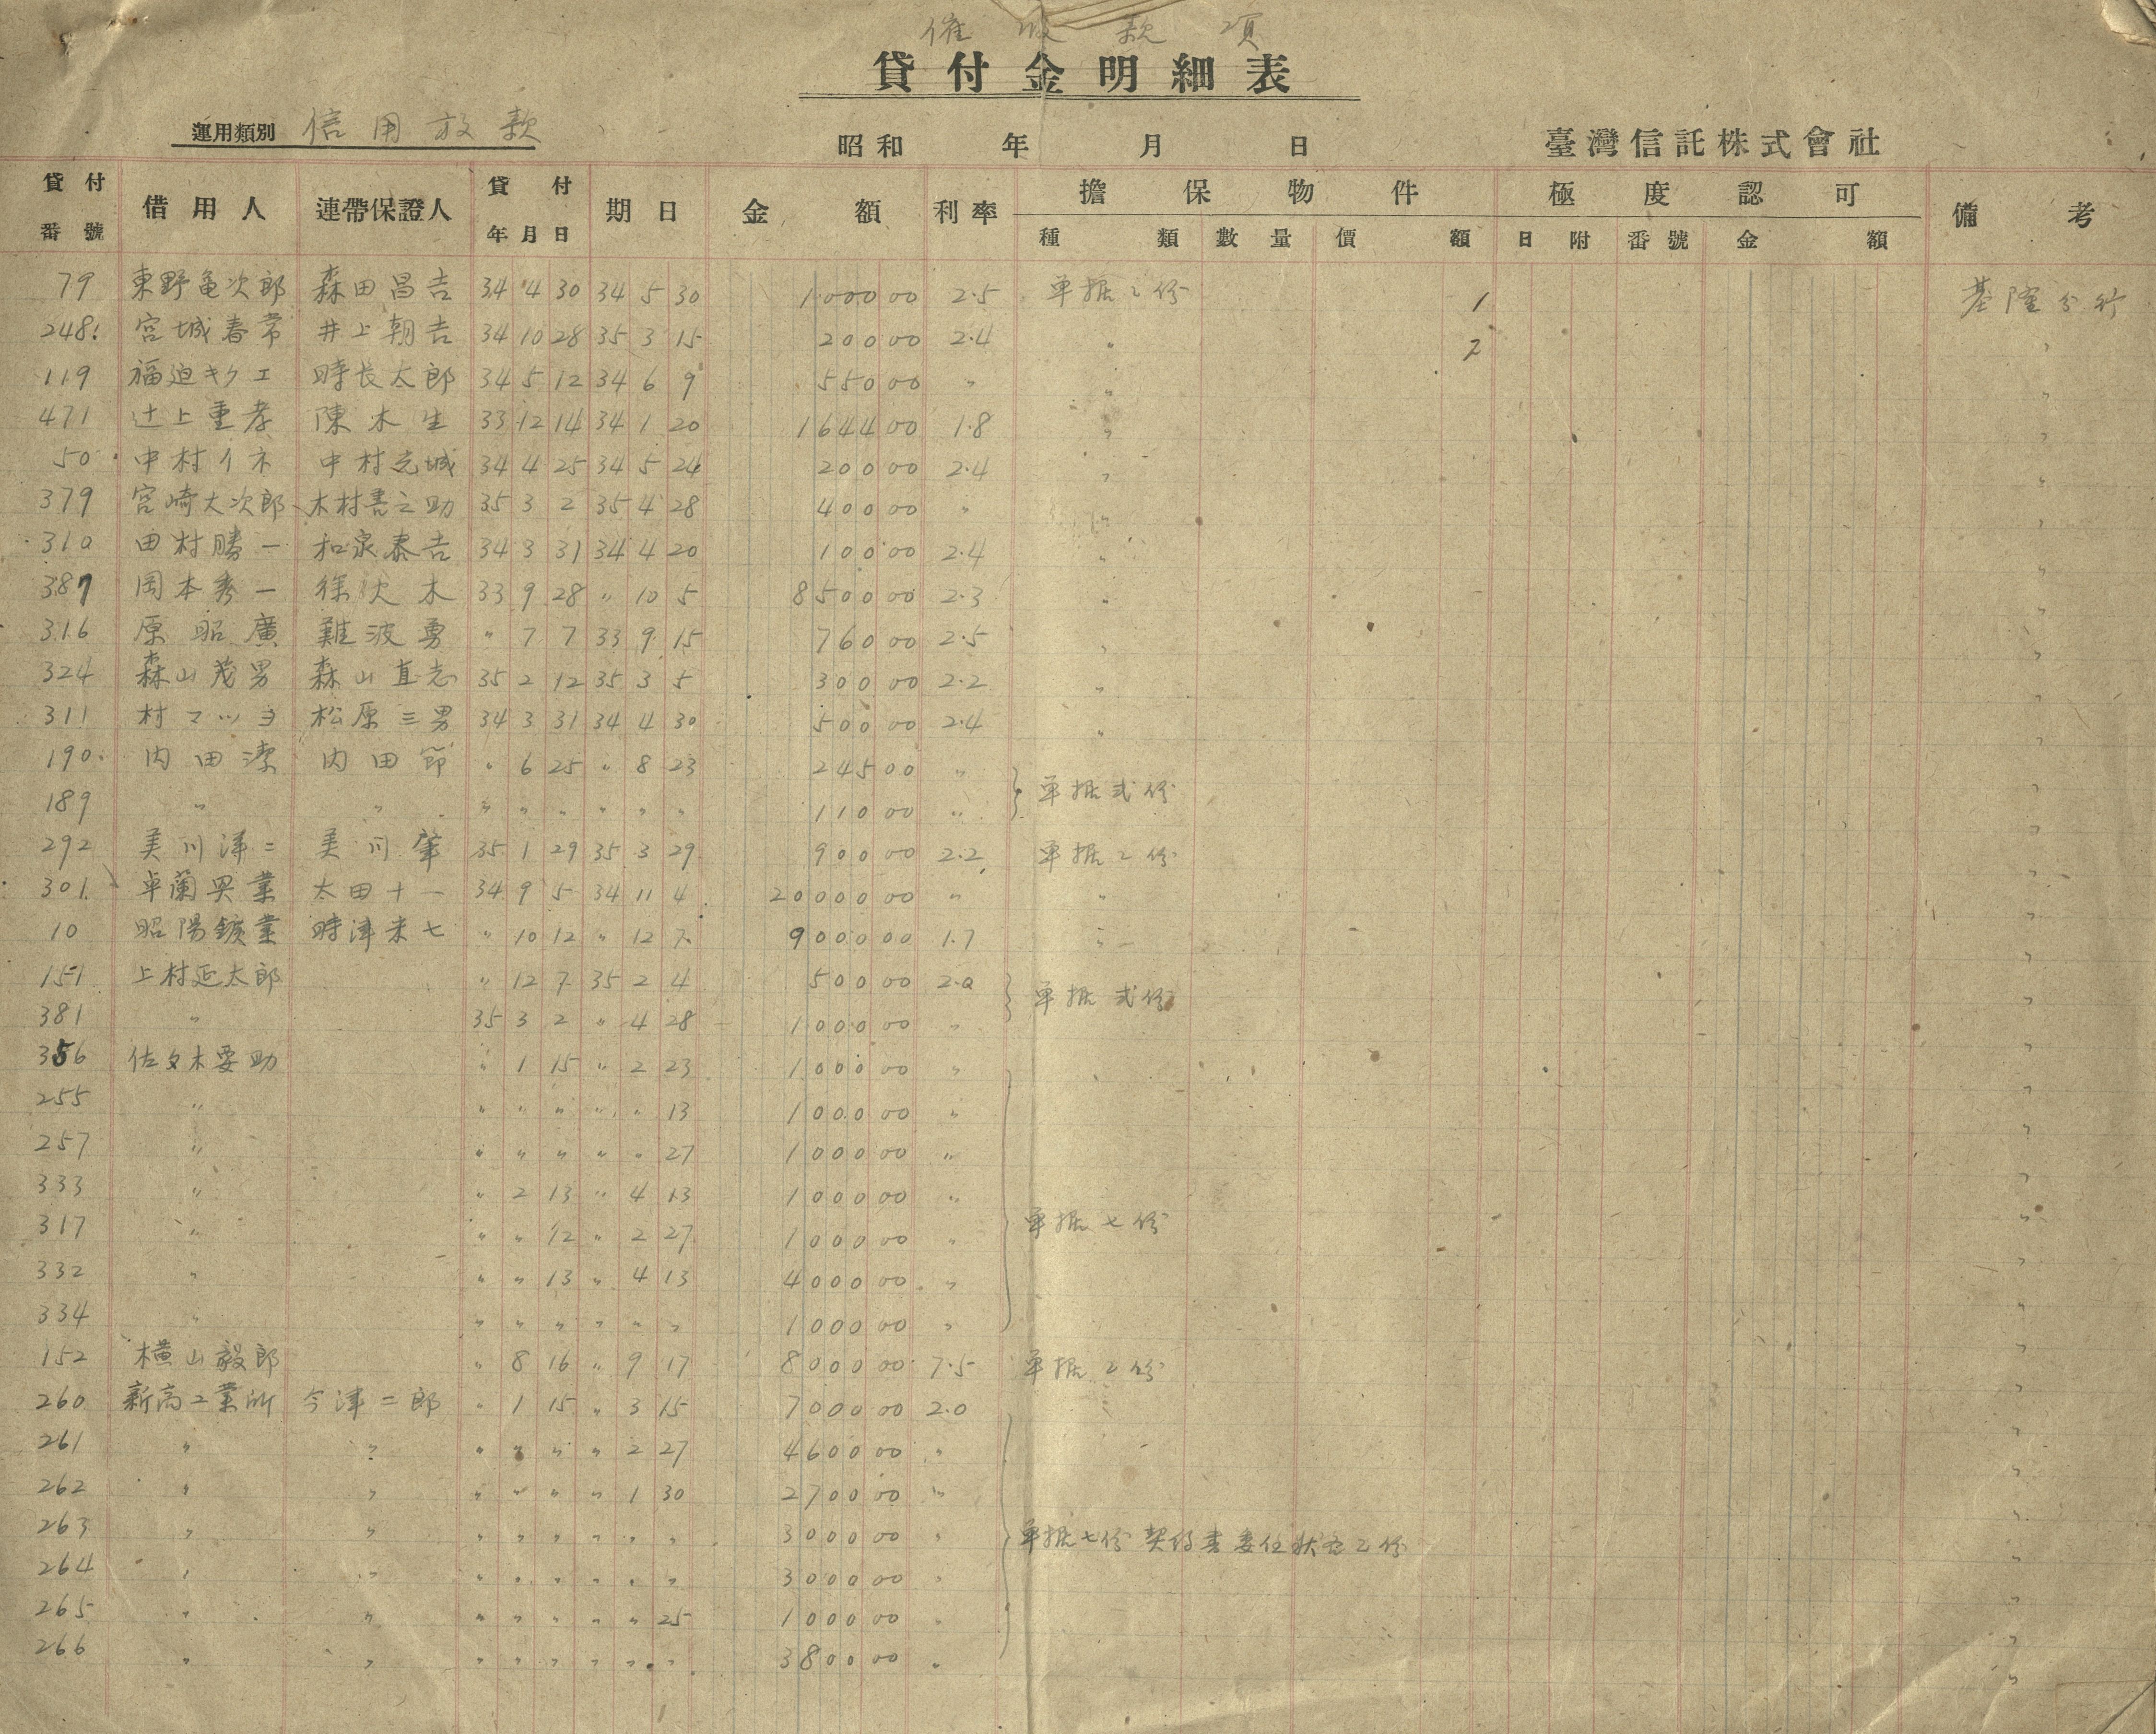 催收款項
貸付金明細表
運用類別 信用放款
昭和 年 月 日 臺灣信託株式會社
貸付番號 借用人 連帶保證人 貸付年月日 期日 金額 利率 擔保物件 種類 數量 價額 極度認可 日附 番號 金額 備考
79 東野亀次郎 森田昌吉 34 4 30 34 5 30 1000 00 2.5 单据乙份 1 基隆分行
248 宮城春常 井上朝吉 34 10 28 35 3 15 200 00 2.4 〃 2 〃
119 福迫キクエ 時長太郎 34 5 12 34 6 9 550 00 〃 〃 〃
471 辻上重孝 陳木生 33 12 14 34 1 20 1644 00 1.8 〃 〃
50 中村イネ 中村 34 4 25 34 5 24 200 00 2.4 〃 〃
379 宮崎大次郎 木村善之助 35 3 2 35 4 28 400 00 〃 〃
310 田村勝一 和泉泰吉 34 3 31 34 4 20 100 00 2.4 〃 〃
387 岡本秀一 徐 木 33 9 28 〃 10 5 8500 00 2.3 〃 〃
316 原昭廣 難波勇 〃 7 7 33 9 15 760 00 2.5 〃 〃
324 森山茂男 森山直志 35 2 12 35 3 5 300 00 2.2 〃 〃
311 村マツヨ 松原三男 34 3 31 34 4 30 500 00 2.4 〃 〃
190 内田潔 内田節 〃 6 25 〃 8 23 245 00 〃 单据弍份 〃
189 〃 〃 〃 〃 〃 〃 〃 〃 110 00 〃 〃
292 美川洋二 美川肇 35 1 29 35 3 29 900 00 2.2 单据乙份 〃
301 卓蘭興業 太田十一 34 9 5 34 11 4 20000 00 〃 〃 〃
10 昭陽鑛業 時津来七 〃 10 12 〃 12 7 9000 00 1.7 〃 〃
151 上村延太郎 〃 12 7 35 2 4 500 00 2.0 单据弍份 〃
381 〃 35 3 2 〃 4 28 1000 00 〃 〃
356 佐々木要助 〃 1 15 〃 2 23 1000 00 〃 〃
255 〃 〃 〃 〃 〃 〃 13 1000 00 〃 〃
257 〃 〃 〃 〃 〃 〃 27 1000 00 〃 〃
333 〃 〃 2 13 〃 4 13 1000 00 〃 〃
317 〃 〃 〃 12 〃 2 27 1000 00 〃 单据七份 〃
332 〃 〃 〃 13 〃 4 13 4000 00 〃 〃
334 〃 〃 〃 〃 〃 〃 〃 1000 00 〃 〃
152 横山毅郎 〃 8 16 〃 9 17 8000 00 7.5 单据乙份 〃
260 新高工業所 今津二郎 〃 1 15 〃 3 15 7000 00 2.0 〃
261 〃 〃 〃 〃 〃 〃 2 27 4600 00 〃 〃
262 〃 〃 〃 〃 〃 〃 1 30 2700 00 〃 〃
263 〃 〃 〃 〃 〃 〃 〃 〃 3000 00 〃 单据七份 契約書委任狀各乙份 〃
264 〃 〃 〃 〃 〃 〃 〃 〃 3000 00 〃 〃
265 〃 〃 〃 〃 〃 〃 〃 25 1000 00 〃 〃
266 〃 〃 〃 〃 〃 〃 〃 〃 3800 00 〃 〃